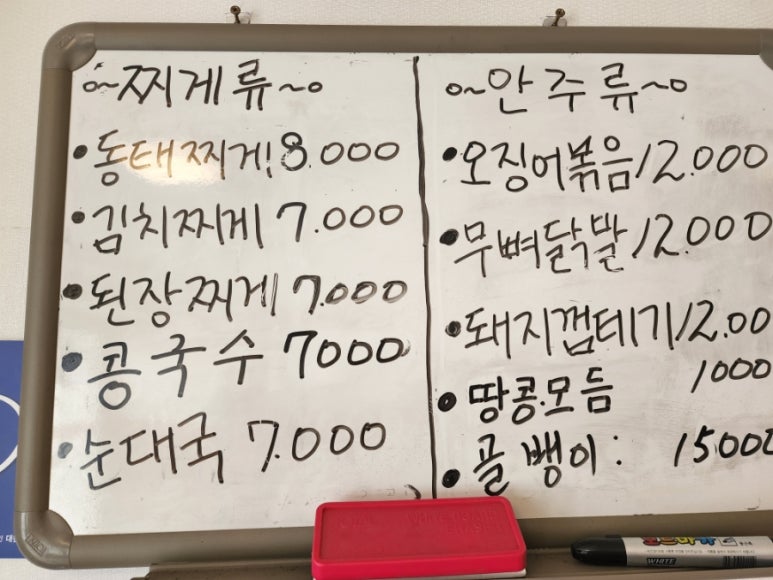 o~찌게류~o
• 동태찌게 8.000
• 김치찌게 7.000
• 된장찌게 7.000
• 콩국수 7000
• 순대국 7.000
o~안주류~o
• 오징어볶음 12.000
• 무뼈닭발 12.000
• 돼지껍테기 12.00
• 땅콩.모듬 1000
• 골뱅이: 15000
WHITE